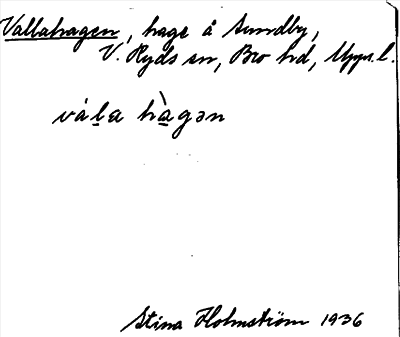 Vallahagen, hage å Sundby,
V. Ryds sn, Bro hd, Upps. l.
vàl̲a hà̲gən
Stina Holmström 1936